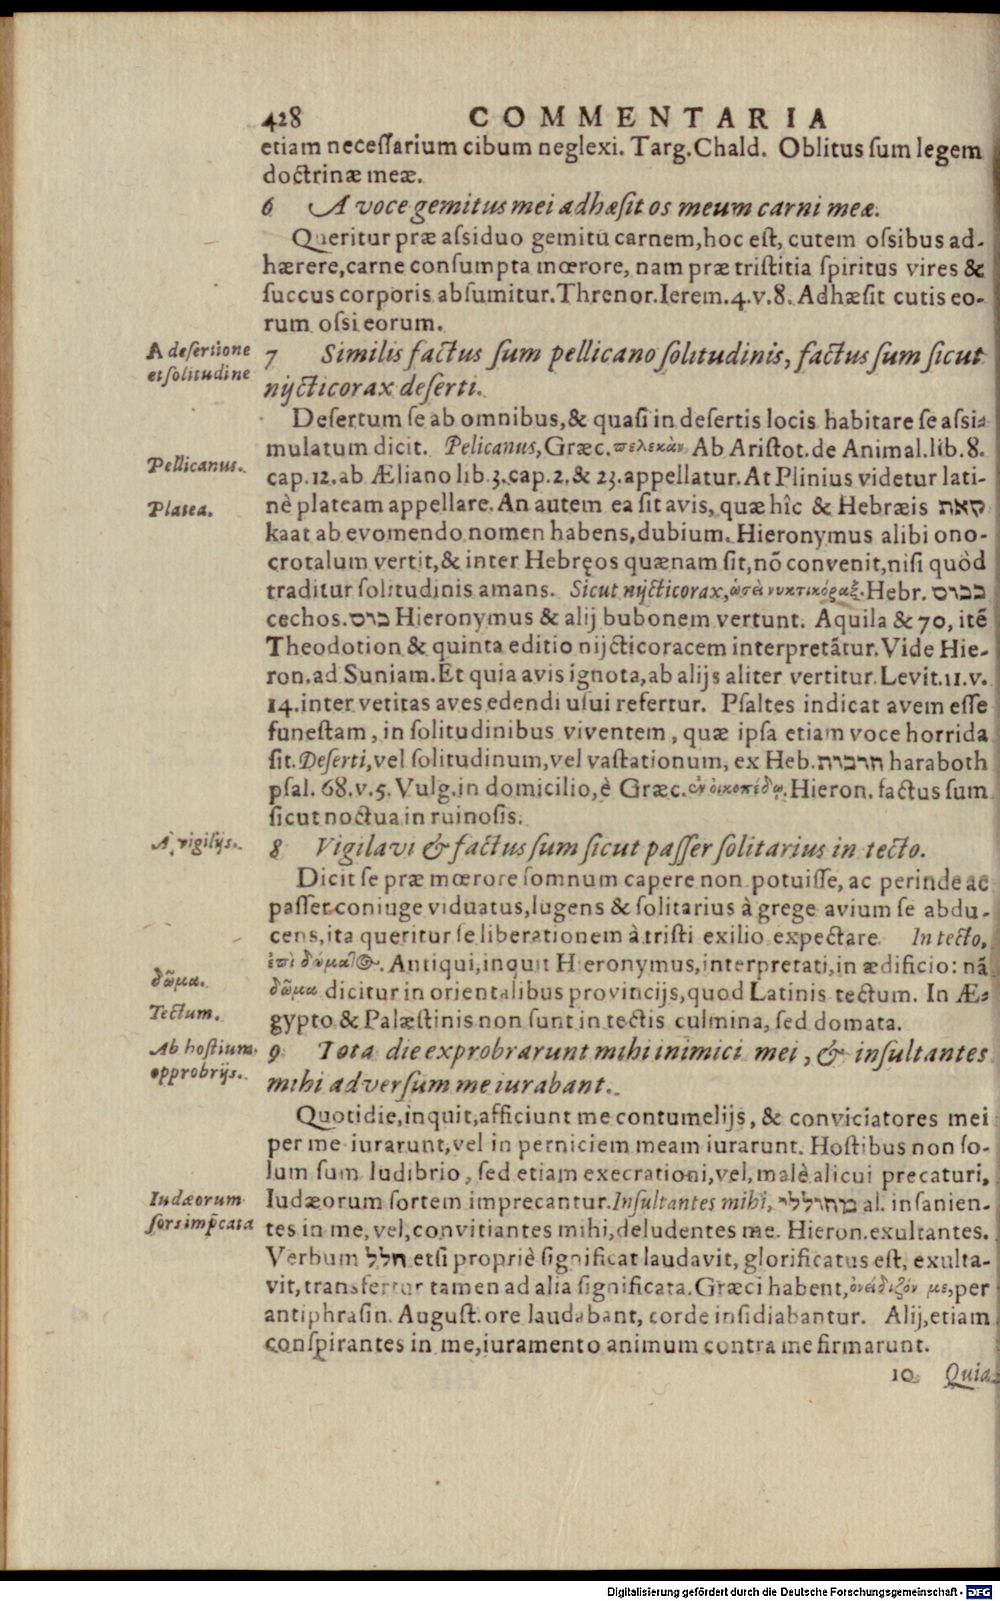 428 COMMENTARIA
etiam necessarium cibum neglexi. Targ. Chald. Oblitus sum legem
doctrinæ meæ.
6 A voce gemitus mei adhæsit os meum carni meæ.
Queritur præ assiduo gemitu carnem, hoc est, cutem ossibus ad-
hærere, carne consumpta mœrore, nam præ tristitia spiritus vires &
succus corporis absumitur. Threnor. Ierem. 4. v. 8. Adhæsit cutis eo-
rum ossi eorum.
A desertione
et solitudine
7 Similis factus sum pellicano solitudinis, factus sum sicut
nijcticorax deserti.
Desertum se ab omnibus, & quasi in desertis locis habitare se assi-
mulatum dicit. Pelicanus, Græc. πελεκὰν. Ab Aristot. de Animal. lib. 8.
Pellicanus.
cap. 12. ab Æliano lib. 3. cap. 2. & 23. appellatur. At Plinius videtur lati-
Platea.
nè plateam appellare. An autem ea sit avis, quæ hîc & Hebræis קאת
kaat ab evomendo nomen habens, dubium. Hieronymus alibi ono-
crotalum vertit, & inter Hebręos quænam sit, nō convenit, nisi quòd
traditur solitudinis amans. Sicut nijcticorax, ὡσεὶ νυκτικόραξ. Hebr. ככוס
cechos. כוס Hieronymus & alij bubonem vertunt. Aquila & 70, itē
Theodotion & quinta editio nijcticoracem interpretātur. Vide Hie-
ron. ad Suniam. Et quia avis ignota, ab alijs aliter vertitur. Levit. 11. v.
14. inter vetitas aves edendi usui refertur. Psaltes indicat avem esse
funestam, in solitudinibus viventem, quæ ipsa etiam voce horrida
sit. Deserti, vel solitudinum, vel vastationum, ex Heb. חרבות haraboth
psal. 68. v. 5. Vulg. in domicilio, è Græc. ἐν οἰκοπέδῳ. Hieron. factus sum
sicut noctua in ruinosis.
A vigilijs.
8 Vigilavi & factus sum sicut passer solitarius in tecto.
Dicit se præ mœrore somnum capere non potuisse, ac perinde ac
passer coniuge viduatus, lugens & solitarius à grege avium se abdu-
cens, ita queritur se liberationem à tristi exilio expectare. In tecto,
ἐπὶ δώματος. Antiqui, inquit Hieronymus, interpretati, in ædificio: nā
δῶμα.
δῶμα dicitur in orientalibus provincijs, quod Latinis tectum. In Æ-
Tectum.
gypto & Palæstinis non sunt in tectis culmina, sed domata.
Ab hostium
opprobrijs.
9 Tota die exprobrarunt mihi inimici mei, & insultantes
mihi adversum me iurabant.
Quotidie, inquit, afficiunt me contumelijs, & conviciatores mei
per me iurarunt, vel in perniciem meam iurarunt. Hostibus non so-
lum sum ludibrio, sed etiam execrationi, vel, malè alicui precaturi,
Iudæorum
sors imp̄cata
Iudæorum sortem imprecantur. Insultantes mihi, מהוללי al. insanien-
tes in me, vel, convitiantes mihi, deludentes me. Hieron. exultantes.
Verbum הלל etsi propriè significat laudavit, glorificatus est, exulta-
vit, transfertur tamen ad alia significata. Græci habent, ὀνείδιζόν με, per
antiphrasin. August. ore laudabant, corde insidiabantur. Alij, etiam
conspirantes in me, iuramento animum contra me firmarunt.
10 Quia
Digitalisierung gefördert durch die Deutsche Forschungsgemeinschaft - DFG